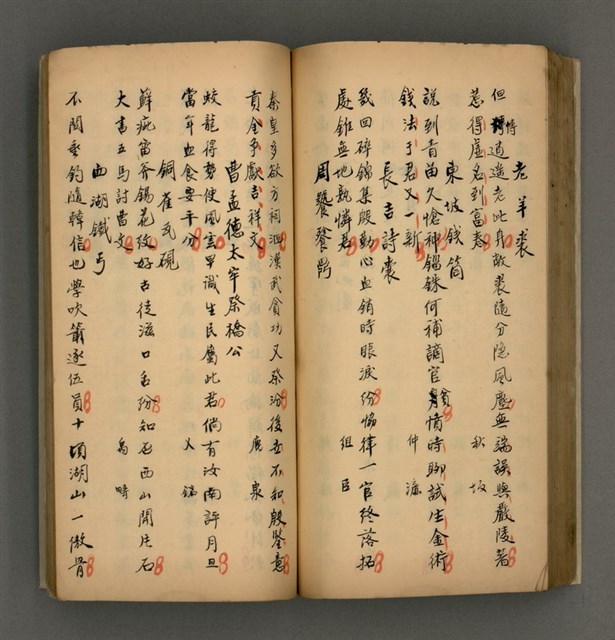 老羊裘
但恃逍遙老此身敝裘隨分隱風塵無端誤與嚴陵著
惹得虛名到富春 秋坂
東坡錢筒
說到青苗久愴神錙銖何補謫官貧憤時聊試生金術
錢法于君又一新 仲濂
長吉詩囊
幾回碎錦集殷勤心血銷時賬淚紛協律一官終落拓
處錐無地孰憐君 組臣
周饕餮鼎
秦皇多欲方祠泗漢武貪功又祭汾後世不知殷鑒意
貢金多獻吉祥文 鹿泉
曹孟德太牢祭橋公
蛟龍得勢使風雲早識生民屬此君倘有汝南評月旦
當年血食要平分 又鎬
銅雀瓦硯
蘚疵雷斧錫花紋好古徒滋口舌紛知否西山開片石
大書五馬討曹文 禹疇
西湖鐵弓
不聞垂釣隨韓信也學吹簫逐伍員十頃湖山一傲骨